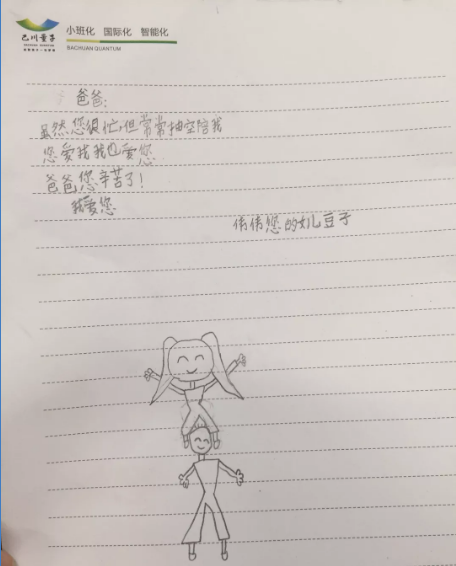 巴川量子
小班化 国际化 智能化
BACHUAN QUANTUM
爸爸:
虽然您很忙,但常常抽空陪我
您爱我我也爱您
爸爸您辛苦了!
我爱您
您的
豆子